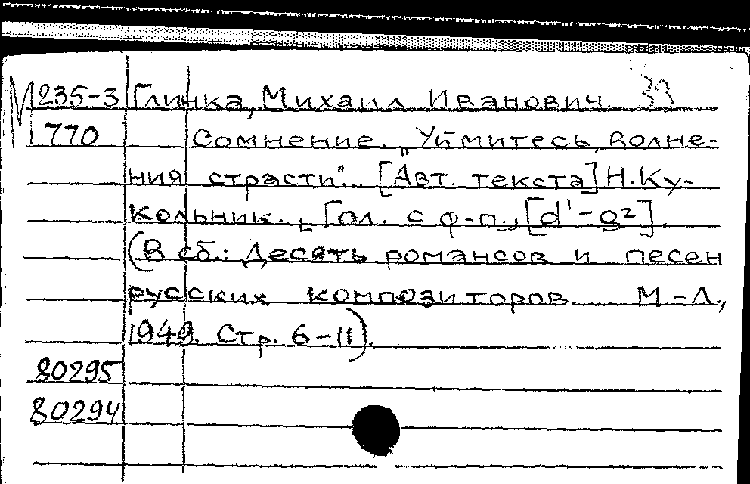 М 235-3 Глинка, Михаил Иванович 33
770 Сомнение. "Уймитесь, волне-
ния страсти". [Авт. текста] Н. Ку-
кольник. [Гол. с ф-п., [d¹-g²]
(В сб.: Десять романсов и песен
русских композиторов М-Л.,
1949. Стр. 6-11).
80295
80294